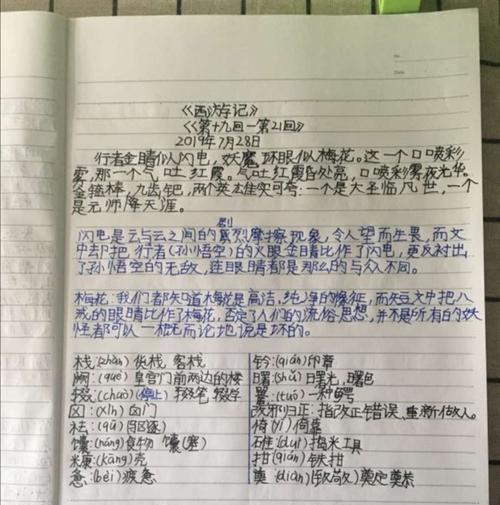 《西游记》
《第十九回一第21回》
2019年7月28日
行者金睛似闪电,妖魔环眼似梅花。这一个口喷彩
雾,那一个气吐红霞。气吐红霞昏处亮,口喷彩雾夜光华。
金箍棒,九齿钯,两个英雄实可夸:一个是大圣临凡世,一个
是元帅降天涯。
剧
闪电是云与云之间的激烈摩擦现象,令人望而生畏,而文
中却把行者(孙悟空)的火眼金睛比作了闪电,更反衬出
了孙悟空的无敌,连眼睛都是那么的与众不同。
梅花,我们都知道梅花是高洁,纯净的象征,而短文中把八
戒的眼睛比作了梅花,否定了人们的流俗思想,并不是所有的妖
怪都可以一概而论地说是坏的。
栈:(zhàn)货栈 客栈
阙:(què)皇宫门前两边的楼
辍:(chuò)(停止)辍笔 辍学
囟:(xìn)囟门
祛:(qū)驱逐
馕:(náng)食物 馕(塞)
糠:(kāng)壳
惫:(bèi)疲惫
钤:(qián)印章
曙:(shǔ)曙光,曙色
鼍:(tuó)一种鳄
改邪归正:指改正错误、重新做人。
倚:(yǐ)倚靠
碓:(duì)捣米工具
钳:(qián)铁钳
奠:(diàn)(致敬)奠定 奠基